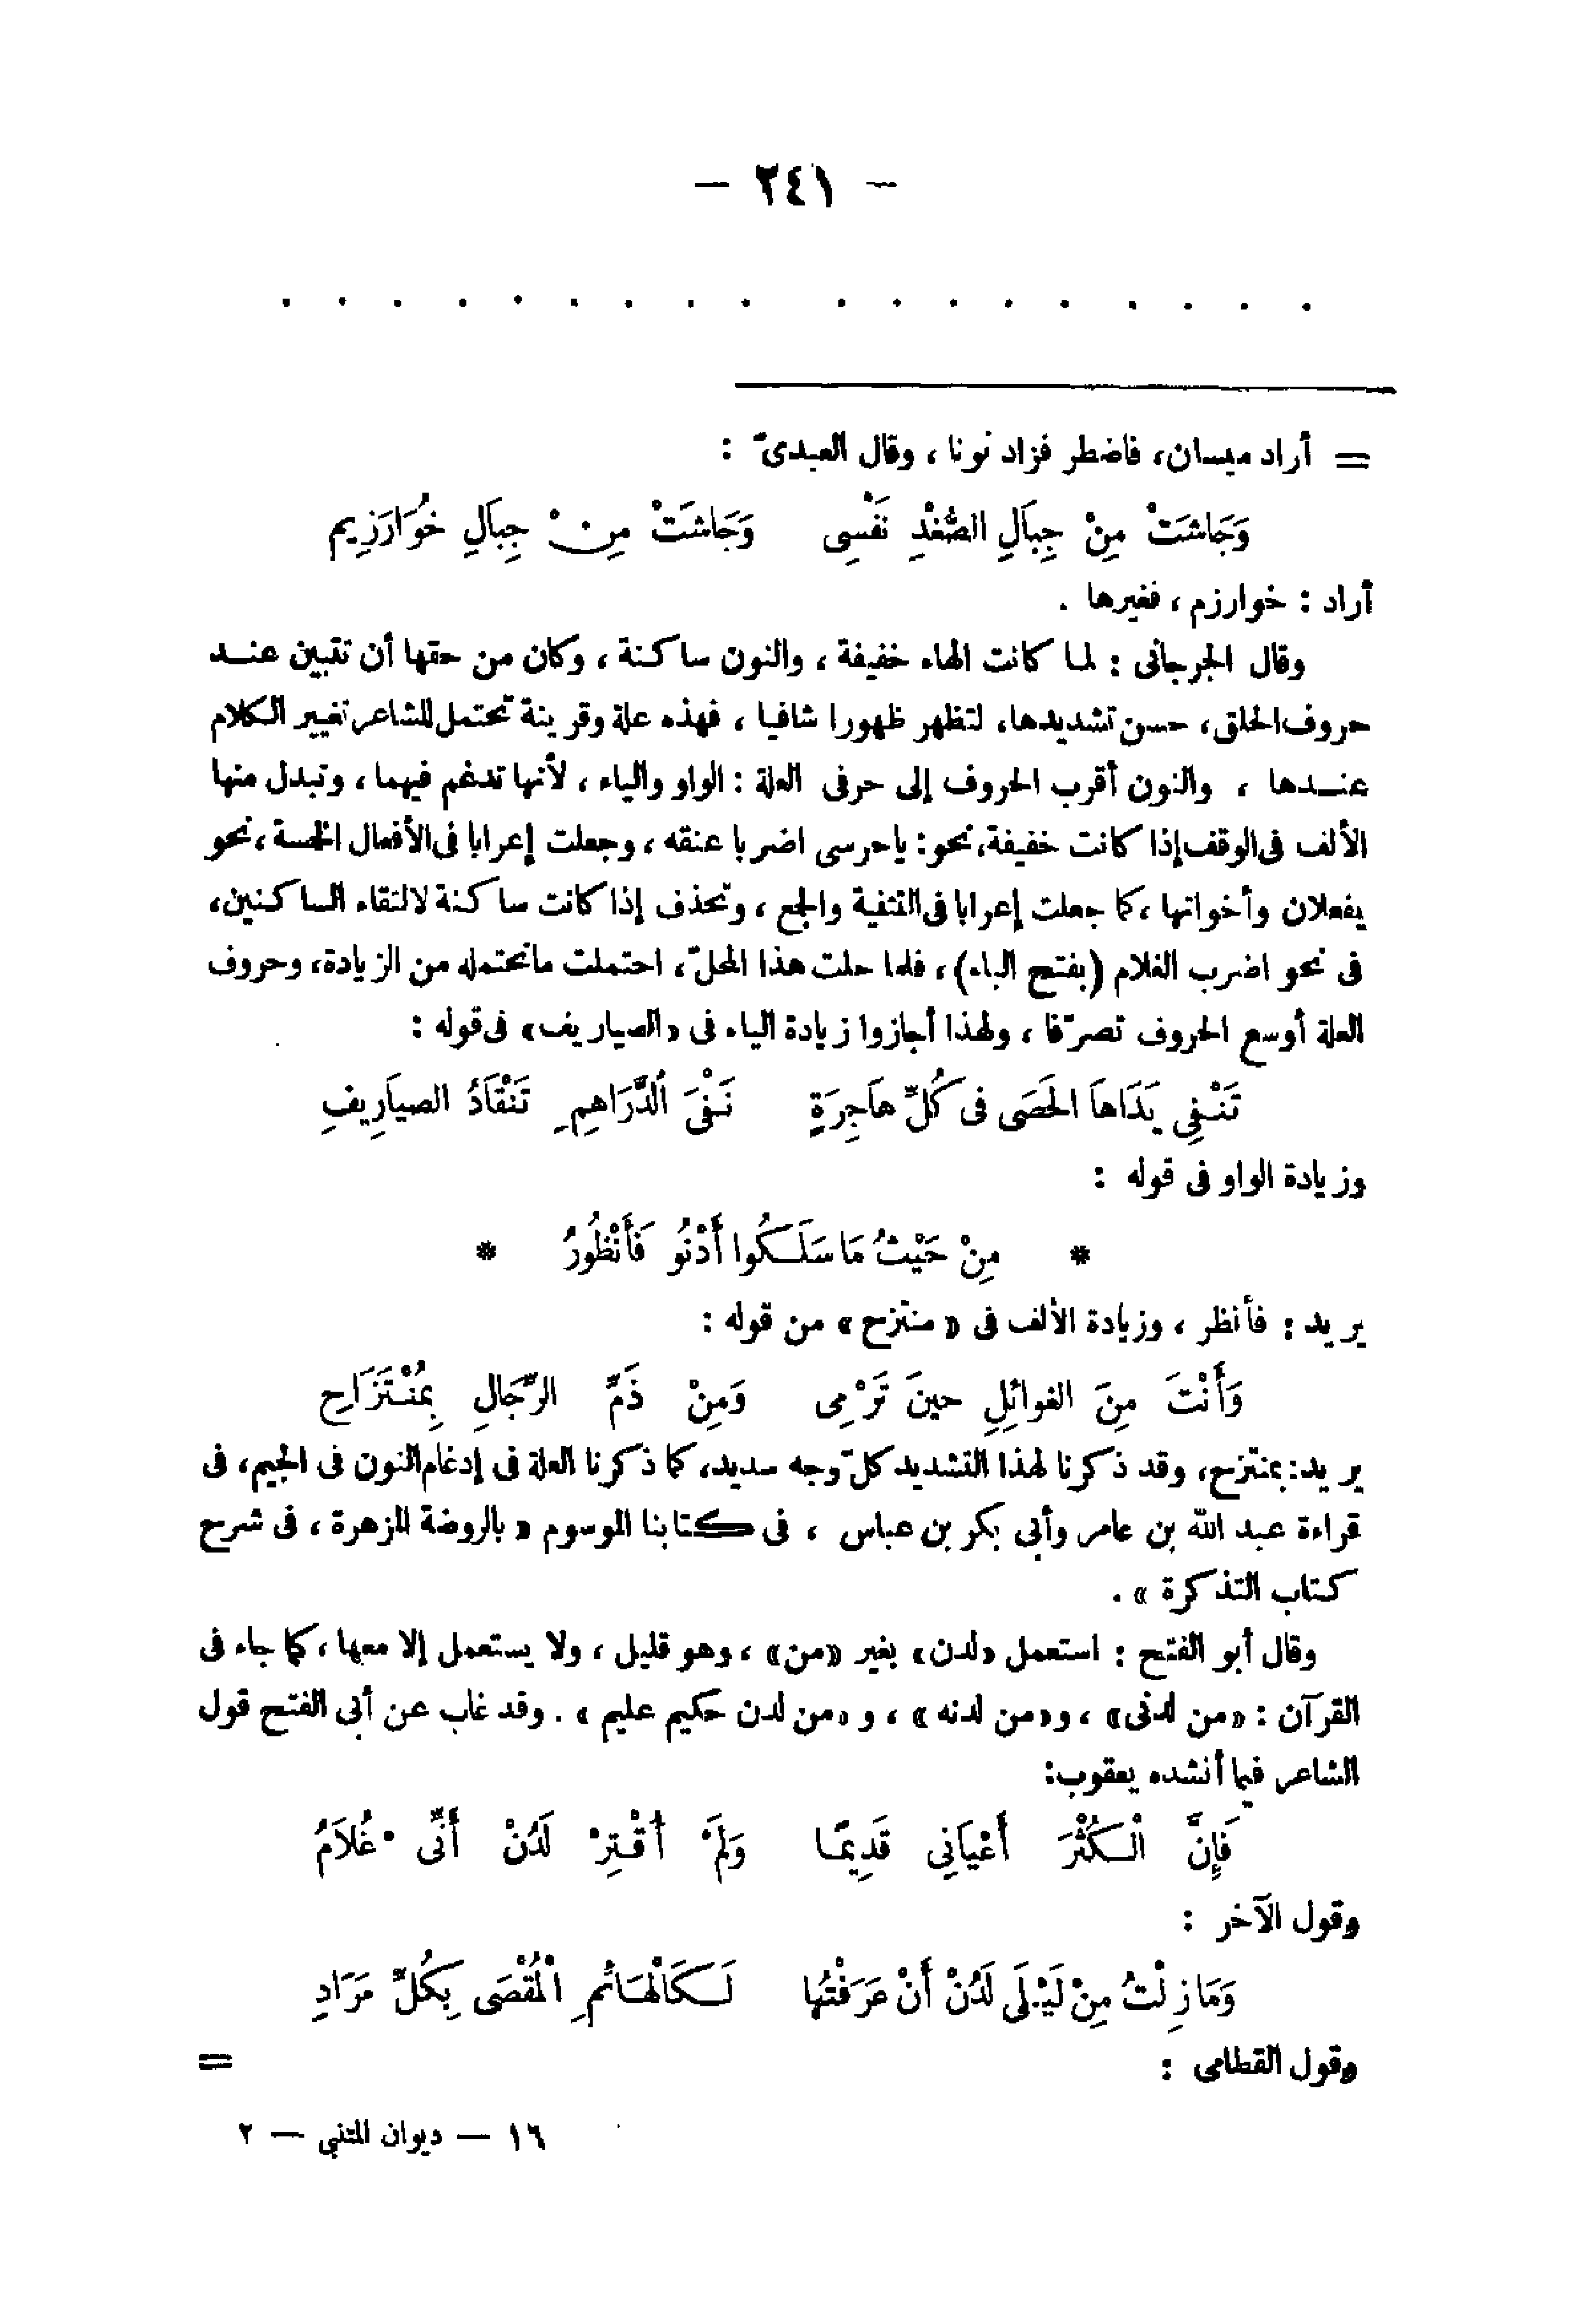 — ٢٤١ —
. . . . . . . . . . . . . . . . . .
= أراد ميسان، فاضطر فزاد نونا ، وقال العبدىّ :
وَجَاشَتْ مِنْ جِبَالِ الصُّغْدِ نَفْسِى وَجَاشَتْ مِنْ جِبَالِ خُوَارَزِيم
أراد : خوارزم ، فغيرها .
وقال الجرجانى : لما كانت الهاء خفيفة ، والنون ساكنة ، وكان من حقها أن تتبين عنـد
حروف الحلق، حسن تشديدها، لتظهر ظهورا شافيا ، فهذه علة وقرينة تحتمل للشاعر تغيير الكلام
عنـدها ، والنون أقرب الحروف إلى حرفى العلة : الواو والياء ، لأنها تدغم فيهما ، وتبدل منها
الألف فى الوقف إذا كانت خفيفة، نحو: ياحرسى اضربا عنقه ، وجعلت إعرابا فى الأفعال الخمسة ، نحو
يفعلان وأخواتها ، كما جعلت إعرابا فى التثنية والجمع ، وتحذف إذا كانت ساكنة لالتقاء الساكنين،
فى نحو اضرب الغلام (بفتح الباء) ، فلما حلت هذا المحلّ ، احتملت ماتحتمله من الزيادة، وحروف
العلة أوسع الحروف تصرّفا ، ولهذا أجازوا زيادة الياء فى «الصياريف» فى قوله :
تَنْـفِى يَدَاهَا الحَصَى فى كُلِّ هَاجِرَةٍ نَـفْىَ الدَّرَاهِمِ تَنْقَادُ الصيَارِيفِ
وزيادة الواو فى قوله :
* مِنْ حَيْثُ مَا سَلَـكُوا أَدْنُو فَأَنْظُورُ *
يريد : فأنظر ، وزيادة الألف فى « منتزح » من قوله :
وَأَنْتَ مِنَ الغوائِلِ حينَ تَرْمِى وَمِنْ ذَمِّ الرِّجَالِ بِمُنْـتَزَاحِ
يريد: بمنتزح، وقد ذكرنا لهذا التشديد كلّ وجه سديد، كما ذكرنا العلة فى إدغام النون فى الجيم، فى
قراءة عبد الله بن عامر وأبى بكر بن عباس ، فى كتابنا الموسوم « بالروضة المزهرة ، فى شرح
كتاب التذكرة » .
وقال أبو الفتح : استعمل «لدن» بغير «من» ، وهو قليل ، ولا يستعمل إلا معها ، كما جاء فى
القرآن : «من لدنى» ، و«من لدنه » ، و «من لدن حكيم عليم » . وقد غاب عن أبى الفتح قول
الشاعر فيما أنشده يعقوب:
فَإِنَّ الْـكُثْرَ أَعْيَانِى قَدِيمًـا وَلَمْ أُقْـتِرْ لَدُنْ أَنِّى غُلَامُ
وقول الآخر :
وَمَا زِلْتُ مِنْ لَيْـلَى لَدُنْ أَنْ عَرَفْتُهَا لَـكَالْهَـائمِ الْمُقْصَى بِكُلِّ مَرَادِ
وقول القطامى :
=
١٦ — ديوان المتنبي — ٢